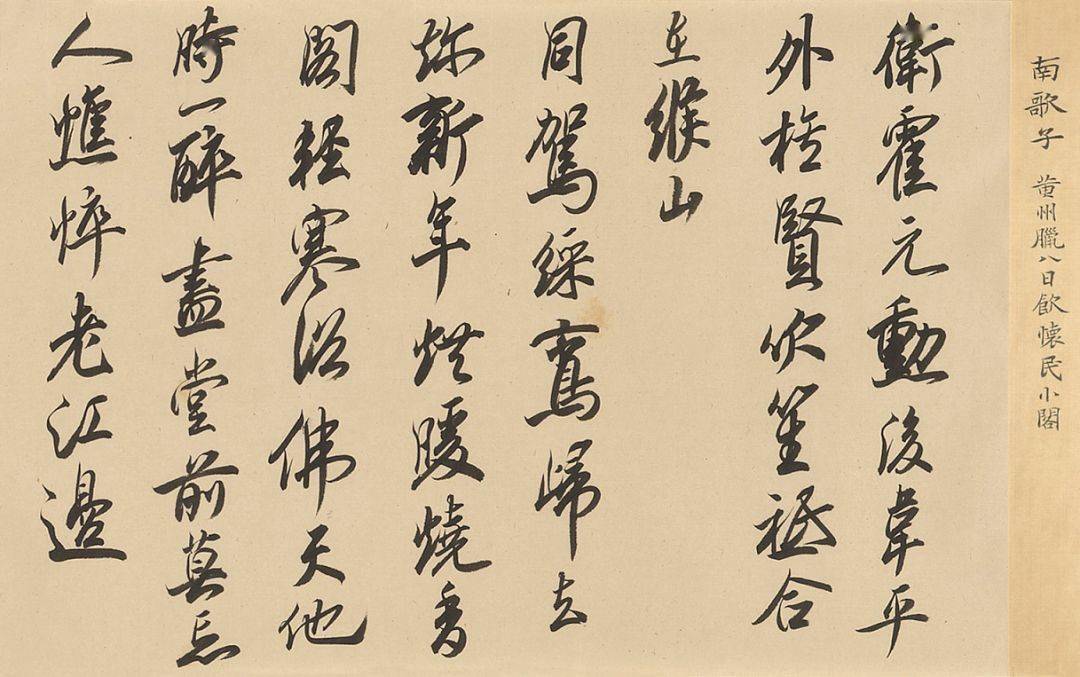 南歌子 黄州臘八日飲懷民小閣
衛霍元勳後韋平
外族賢吹笙祗合
在緱山
同駕綵鸞歸去
趂新年烘暖燒香
閣輕寒浴佛天他
時一醉畫堂前莫忘
人憔悴老江邊